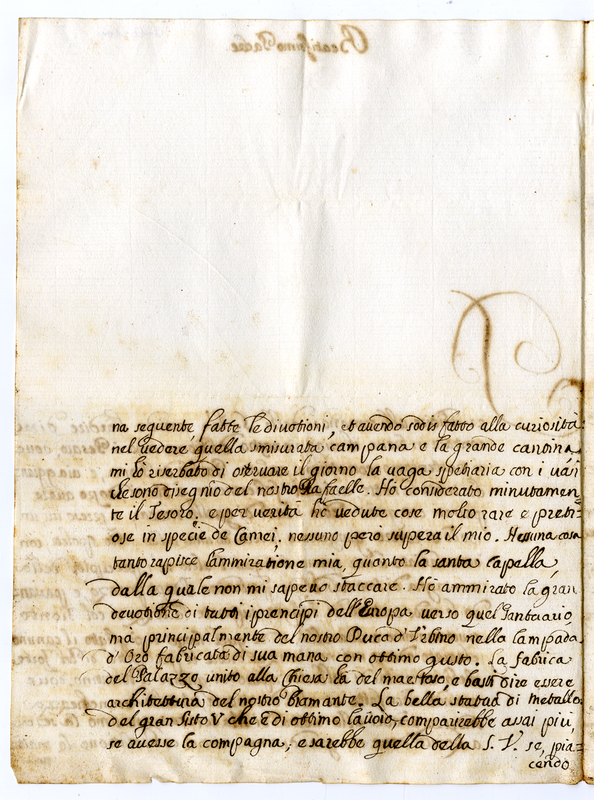 na seguente, fatte le divotioni, et avendo sodisfatto alla curiosità
nel vedere quella smisurata campana e la grande cantina,
mi riserbato di osservare il giorno la vaga spetiaria con i vasi
che sono disegnio del nostro Rafaelle. Ho considerato minutamen=
te il Tesoro, e per verità ho vedute cose molto rare e preti=
ose in specie de Camei, nessuno però supera il mio. Nessuna cosa
tanto rapisce l'ammiratione mia, quanto la santa capella,
dalla quale non mi sapevo staccare. Ho ammirato la gran
devotione di tutti i principi dell'Europa verso quel Santuario
mà principalmente del nostro Duca d'Urbino nella lampada
d'Oro fabricata di sua mana con ottimo gusto. La fabrica
del Palazzo unito alla Chiesa hà del maestoso, e basti dire essere
architettura del nostro Bramante. La bella statua di metallo
del gran Sisto V che è di ottimo lavoio, comparirebbe assai più,
se avesse la compagna, e sarebbe quella della S. V. se, pia=
cendo